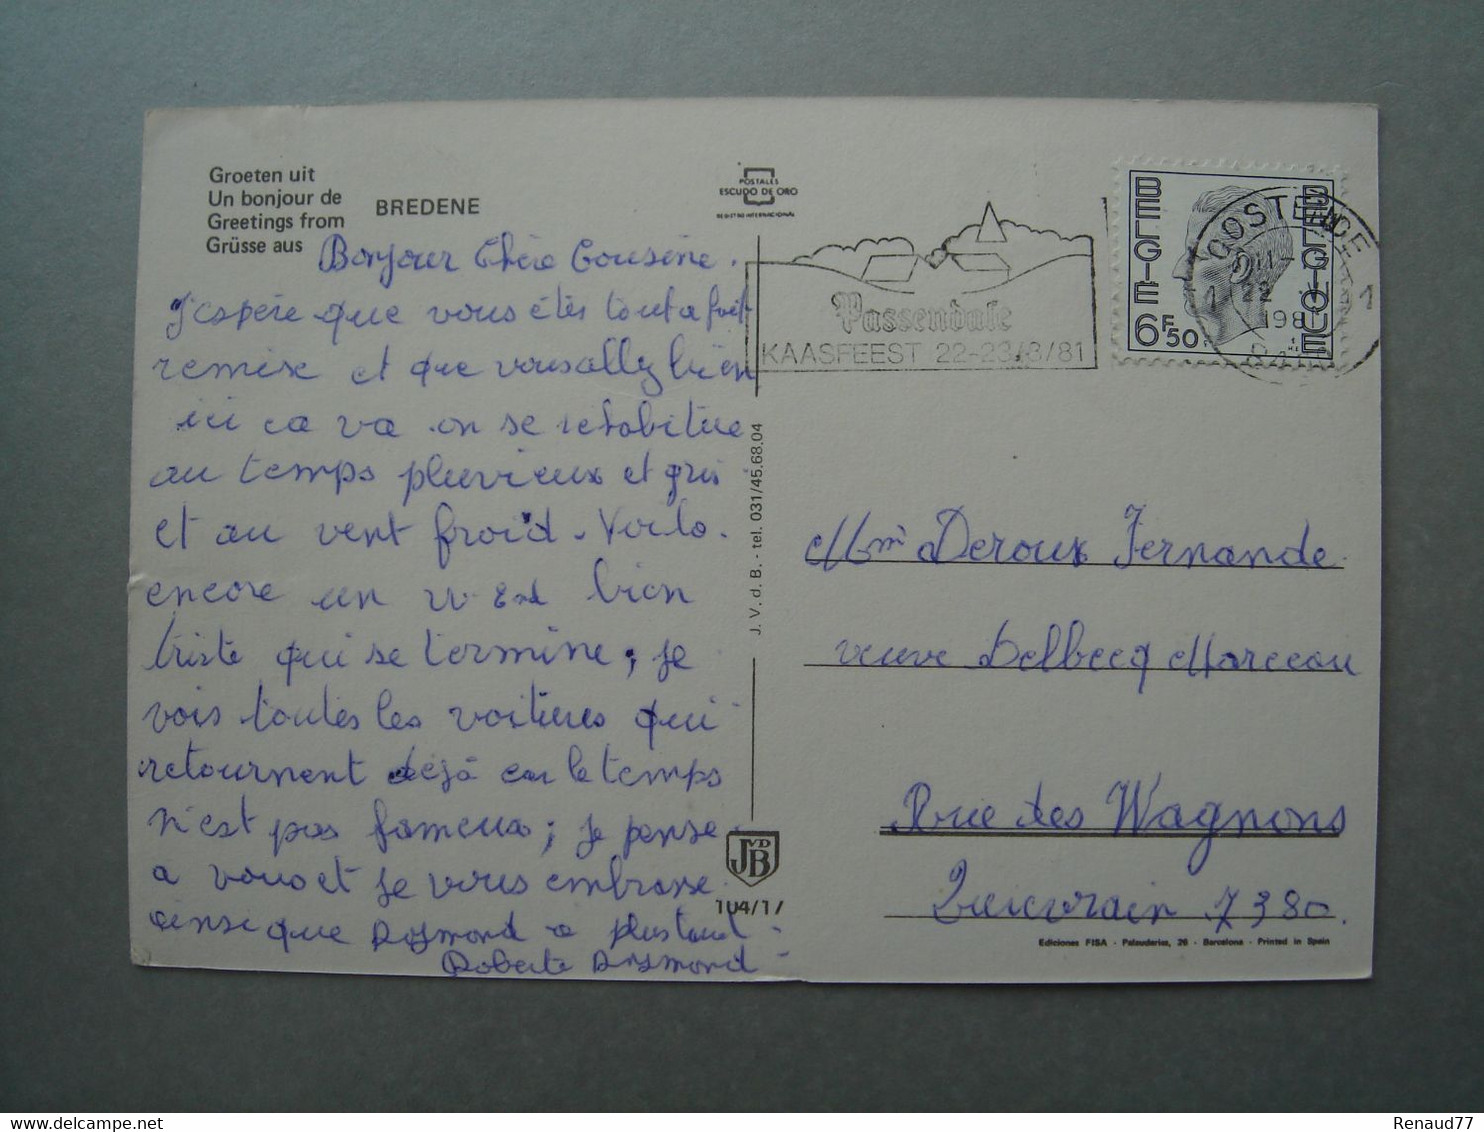 Groeten uit
Un bonjour de
Greetings from
Grüsse aus
BREDENE
Bonjour Chère Cousine.
J'espère que vous êtes tout a fait
remise et que vous allez bien
ici ca va on se rehabitue
au temps pluvieux et gris
et au vent froid. Voila.
encore un W End bien
triste qui se termine, je
vois toutes les voitures qui
retournent déjà car le temps
n'est pas fameux; je pense
a vous et je vous embrasse
ainsi que Raymond a plus tard
Roberte Raymond
POSTALES
ESCUDO DE ORO
REGISTRO INTERNACIONAL
J. V. d. B. - tel. 031/45.68.04
JVDB
104/17
Passendale
KAASFEEST 22-23/3/81
BELGIE
BELGIQUE
6F50
OOSTENDE
1 22 1
198
Mme Deroux Fernande
veuve Delbecq Marceau
Rue des Wagnons
Quievrain 7380.
Ediciones FISA - Palauderias, 26 - Barcelona - Printed in Spain
Renaud77